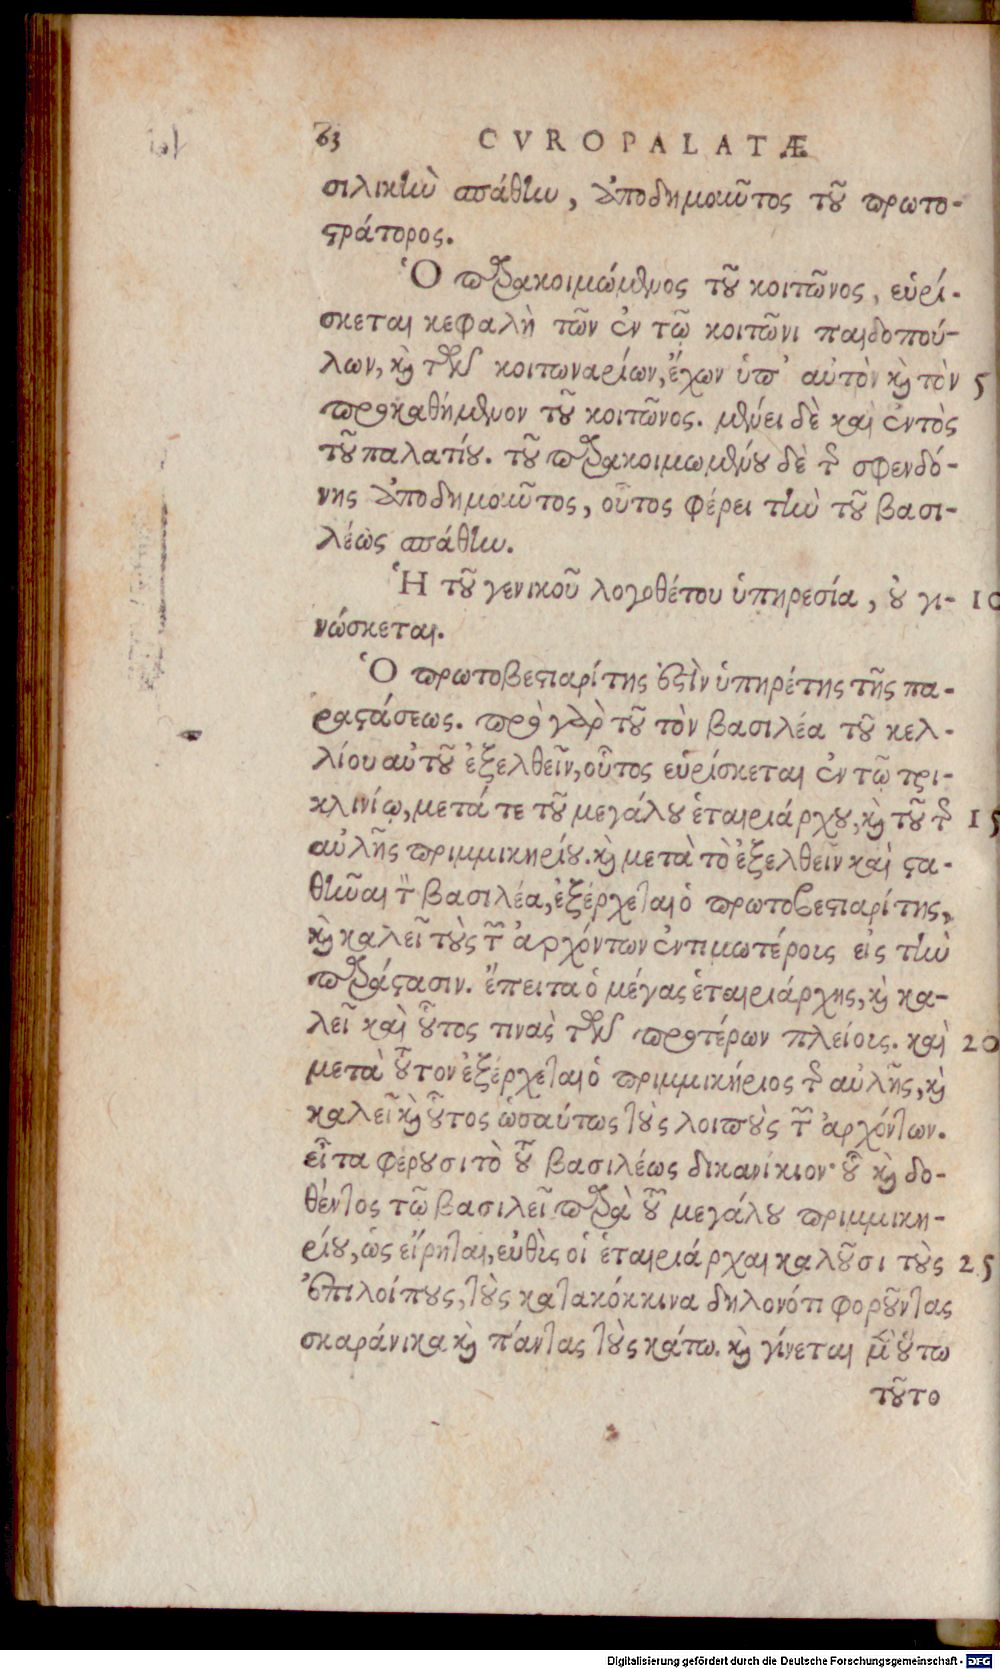 63 CVROPALATÆ
σιλικὴν σπάθην, ἀποδημοῦντος τοῦ πρωτο-
στράτορος.
Ὁ παρακοιμώμενος τοῦ κοιτῶνος, εὑρί-
σκεται κεφαλὴ τῶν ἐν τῷ κοιτῶνι παιδοπού-
λων, καὶ τῶν κοιτωναρίων, ἔχων ὑπ’ αὐτὸν καὶ τὸν 5
προκαθήμενον τοῦ κοιτῶνος. μένει δὲ καὶ ἐντὸς
τοῦ παλατίου. τοῦ παρακοιμωμένου δὲ τῆς σφενδό-
νης ἀποδημοῦντος, οὗτος φέρει τὴν τοῦ βασι-
λέως σπάθην.
Ἡ τοῦ γενικοῦ λογοθέτου ὑπηρεσία, οὐ γι- 10
νώσκεται.
Ὁ πρωτοβεστιαρίτης ἐστὶν ὑπηρέτης τῆς πα-
ραστάσεως. πρὸ γὰρ τοῦ τὸν βασιλέα τοῦ κελ-
λίου αὐτοῦ ἐξελθεῖν, οὗτος εὑρίσκεται ἐν τῷ τρι-
κλινίῳ, μετά τε τοῦ μεγάλου ἑταιριάρχου, καὶ τοῦ τῆς 15
αὐλῆς πριμμικηρίου. καὶ μετὰ τὸ ἐξελθεῖν καὶ στα-
θῆναι τὸν βασιλέα, ἐξέρχεται ὁ πρωτοβεστιαρίτης,
καὶ καλεῖ τοὺς τῶν ἀρχόντων ἐντιμωτέροις εἰς τὴν
παράστασιν. ἔπειτα ὁ μέγας ἑταιριάρχης, καὶ κα-
λεῖ καὶ οὗτος τινὰς τῶν προτέρων πλείοις. καὶ 20
μετὰ τοῦτον ἐξέρχεται ὁ πριμμικήριος τῆς αὐλῆς, καὶ
καλεῖ καὶ οὗτος ὡσαύτως τοὺς λοιποὺς τῶν ἀρχόντων.
εἶτα φέρουσι τὸ τοῦ βασιλέως δικανίκιον· οὗ καὶ δο-
θέντος τῷ βασιλεῖ παρὰ τοῦ μεγάλου πριμμικη-
ρίου, ὡς εἴρηται, εὐθὺς οἱ ἑταιριάρχαι καλοῦσι τοὺς 25
ἐπιλοίπους, τοὺς κατακόκκινα δηλονότι φοροῦντας
σκαράνικα καὶ πάντας τοὺς κάτω. καὶ γίνεται μὲν οὕτω
τοῦτο
Digitalisierung gefördert durch die Deutsche Forschungsgemeinschaft - DFG